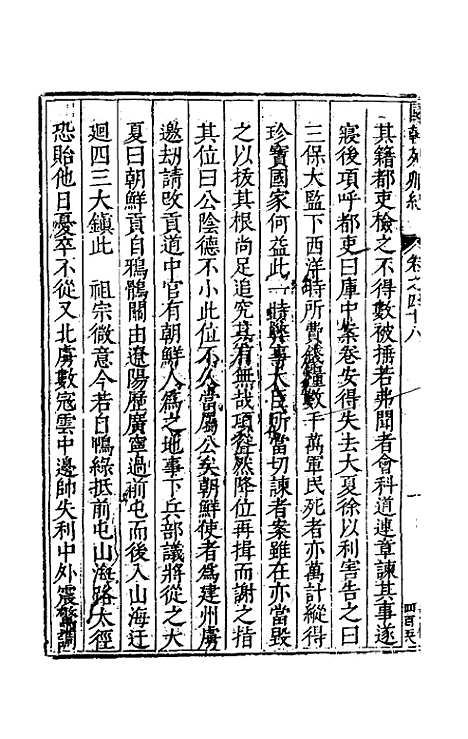 其籍都吏檢之不得數被撻若弗聞者會科道連章諫其事遂
寢後項呼都吏曰庫中案卷安得失去大夏徐以利害告之曰
三保大監下西洋時所費錢糧數千萬軍民死者亦萬計縱得
珍寶國家何益此一時弊事大臣所當切諫者案雖在亦當毀
之以拔其根尚足追究其有無哉項聳然降位再揖而謝之指
其位曰公陰德不小此位不久當屬公矣朝鮮使者為建州虜
邀劫請改貢道中官有朝鮮人為之地事下兵部議將從之大
夏曰朝鮮貢自鴉鶻關由遼陽歷廣寧過前屯而後入山海迂
迴四三大鎮此 祖宗微意今若自鴨綠抵前屯山海路太徑
恐貽他日憂卒不從又北虜數寇雲中邊帥失利中外震
卷之四十八